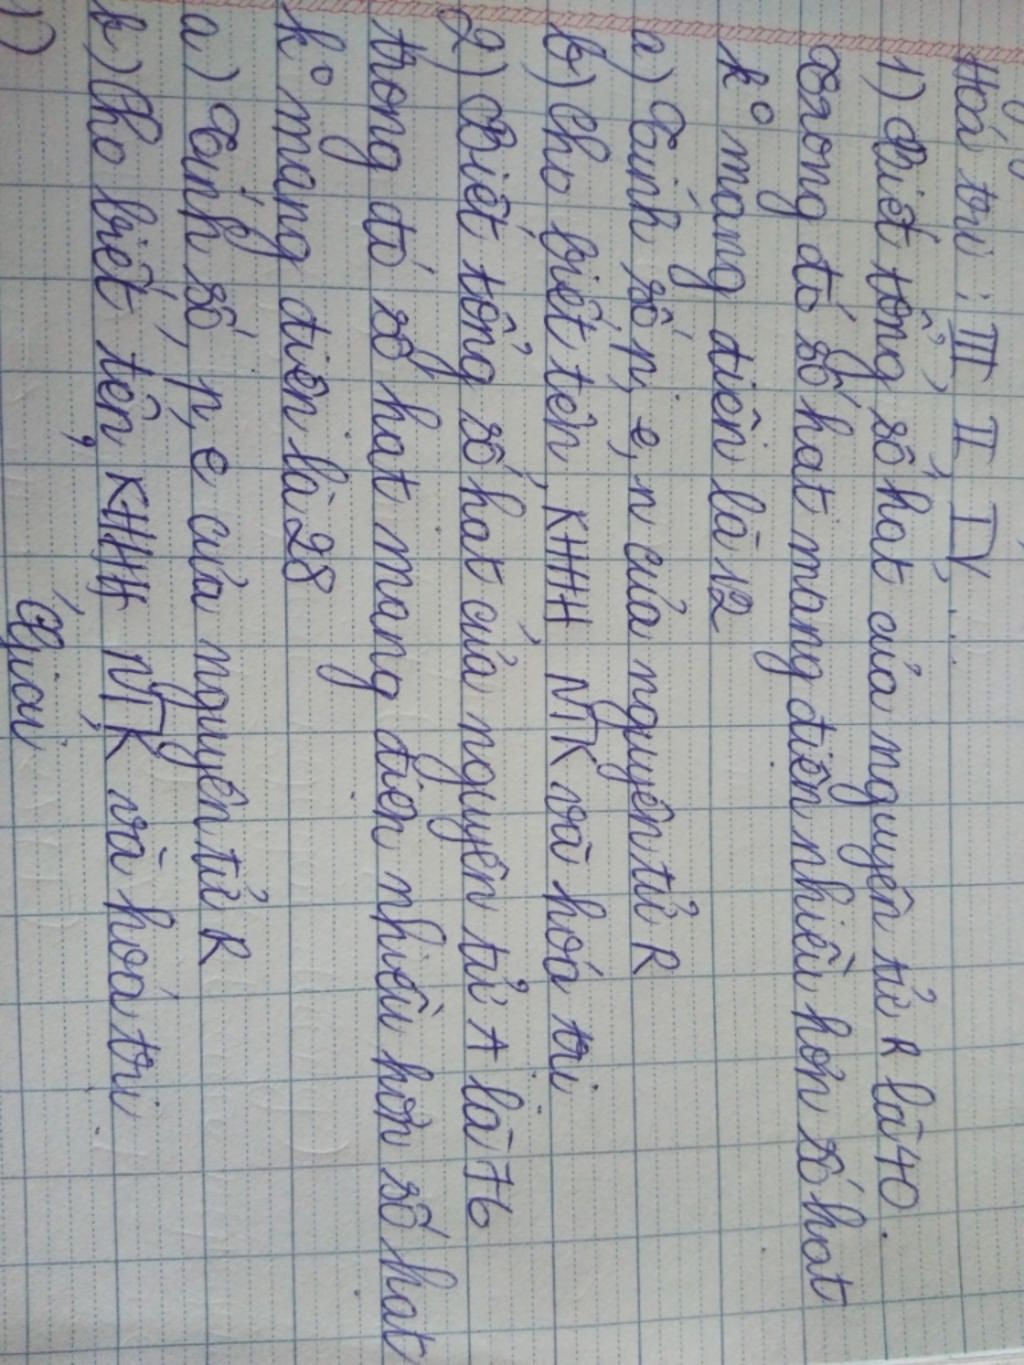 Hoá trị: III, II, IV...
1) Biết tổng số hạt của nguyên tử R là 40.
Trong đó số hạt mang điện nhiều hơn số hạt
k° mang điện là 12
a) Tính số p, e, n của nguyên tử R
b) Cho biết tên, KHHH NTK và hoá trị
2) Biết tổng số hạt của nguyên tử A là 76
trong đó số hạt mang điện nhiều hơn số hạt
k° mang điện là 28
a) Tính số p, e của nguyên tử R
b) Cho biết tên, KHHH, NTK và hoá trị
Giải
1)